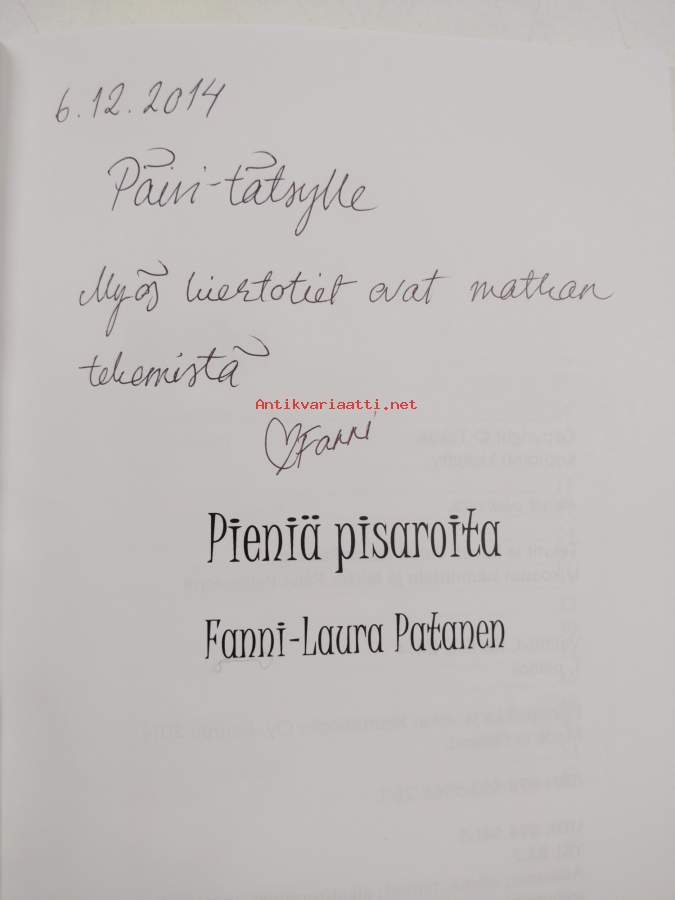 6.12.2014
Päivi-tätsylle
Myös kiertotiet ovat matkan
tekemistä
Antikvariaatti.net
Fanni
Pieniä pisaroita
Fanni-Laura Patanen